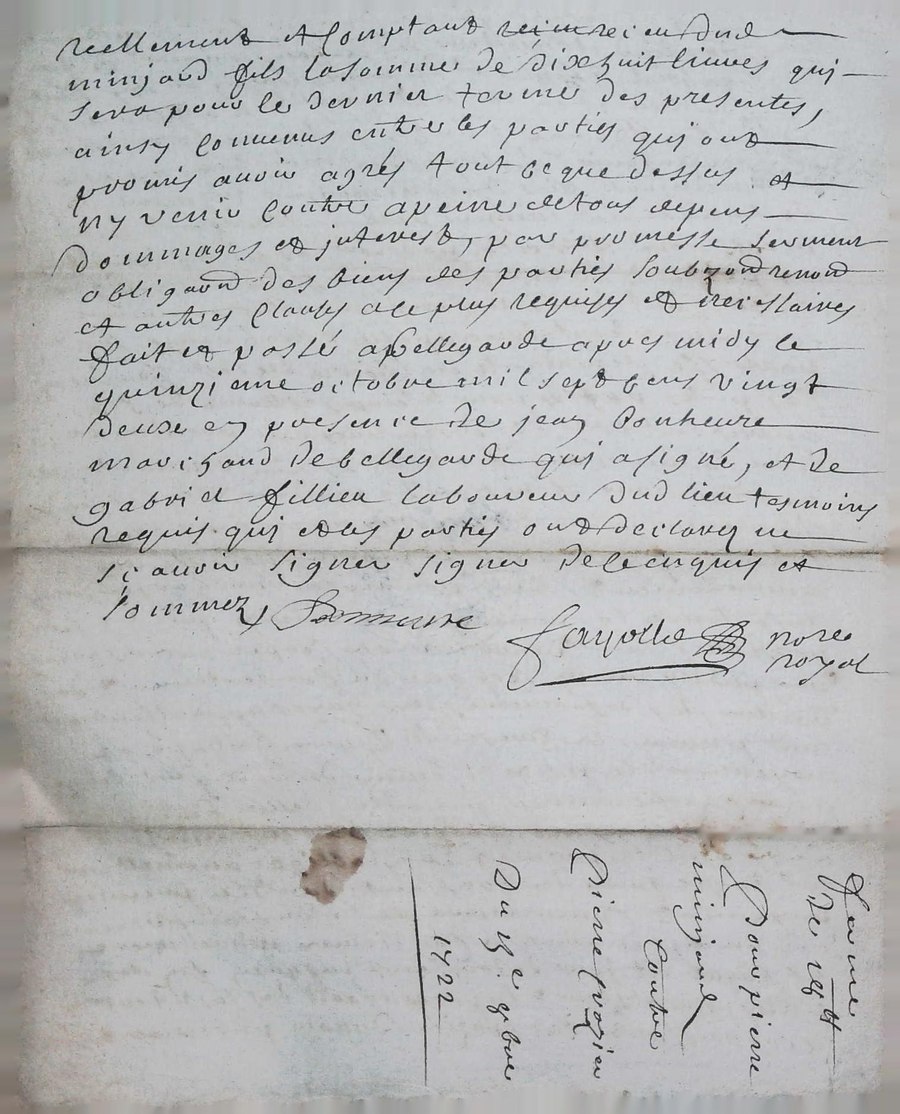 reellement et comptant reim receu dud
minjard fils la somme de dixhuit livres qui
sera pour le dernier terme des presentes,
ainsy convenus entre les parties qui ont
promis avoir agrés tout ce que dessus et
ny venir contre a peine de tous depens
dommages et interest, par promesse serment
obligaond des biens des parties soubz ond renond
et autres clauses a ce plus requises et necessaires
fait et passé a bellegarde apres midy le
quinzieme octobre mil sept cens vingt
deux en presence de jean bonheure
marchand de bellegarde qui a signé, et de
gabriel fillieu laboureur dud lieu tesmoins
requis qui et les parties ont declarez ne
sçavoir signer signer de ce enquis et
sommez, Bonneure
Fayolle nore
royal
ferme
De
Pour pierre
minjard
Contre
Pierre
Du 15e 8bre
1722